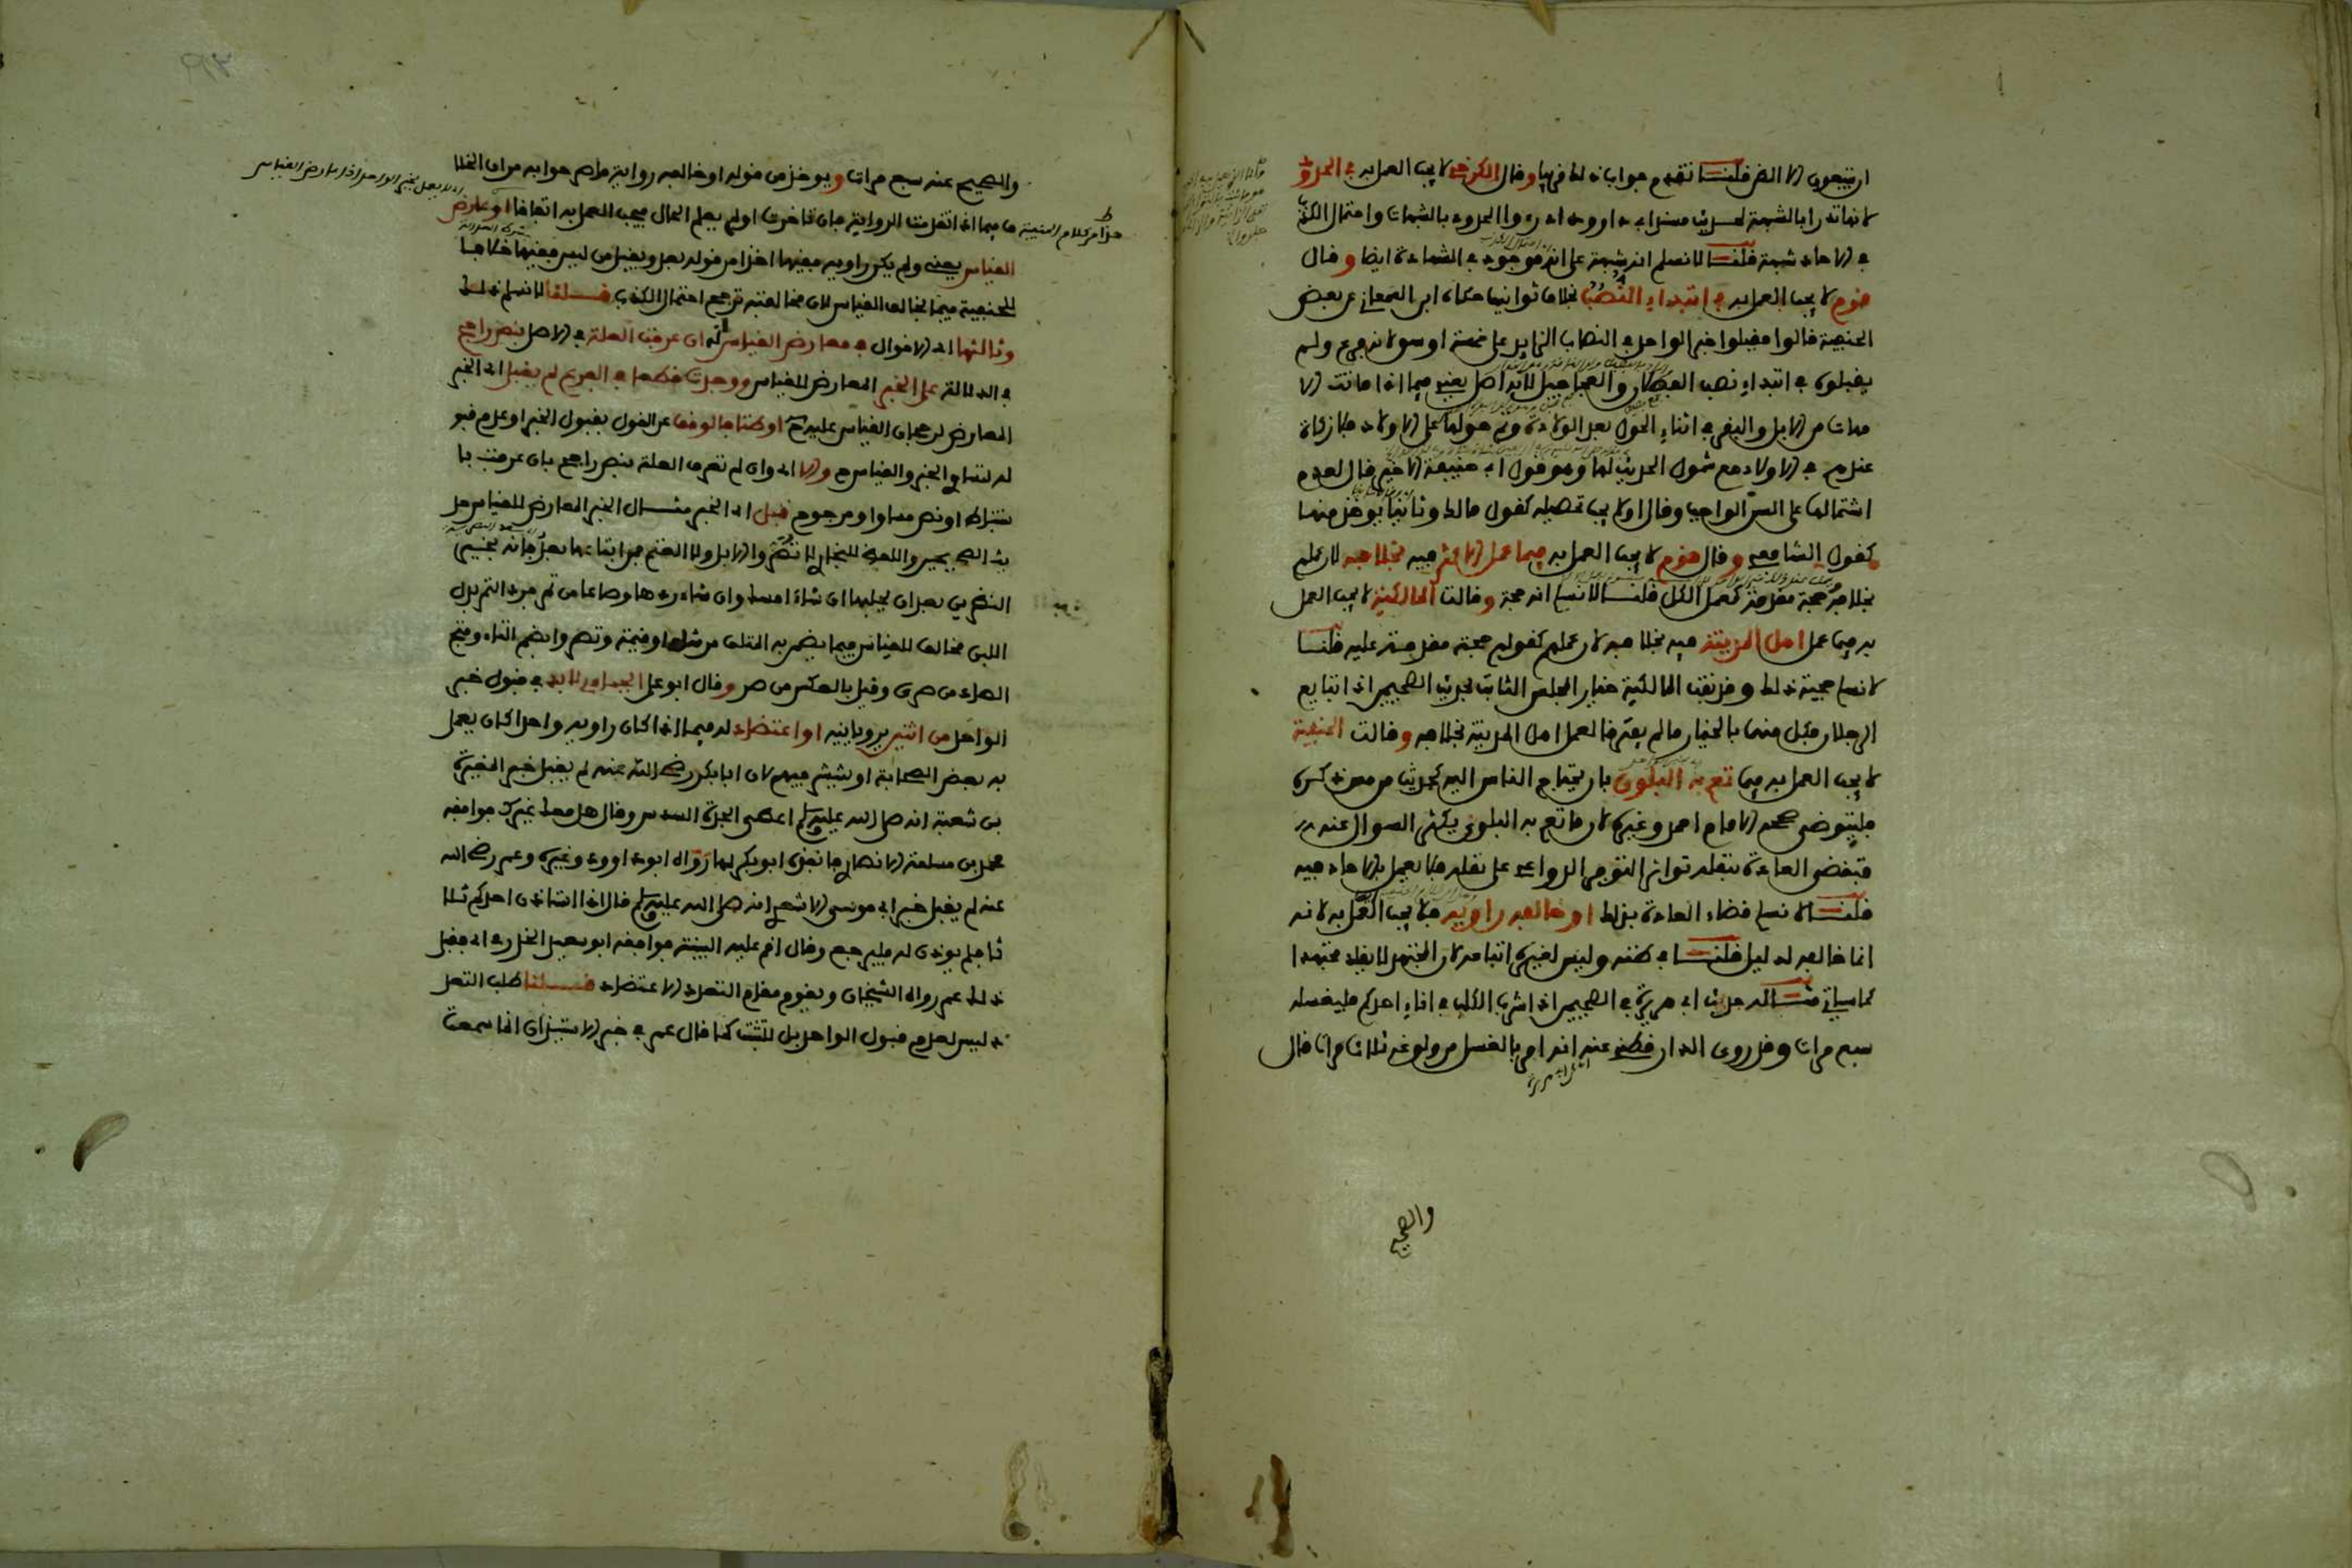 ان يتبعون الا الظن قلنا تقدم جواب ذلك قريبا وقال الكرخي لا يجب العمل به في الحدود
لانها تدرأ بالشبهة لحديث مسند ابي داوود ادرءوا الحدود بالشبهات واحتمال الكذب
في الاحاد شبهة قلنا لا نسلم انه شبهة على انه موجود في الشهادة ايضا وقال
قوم لا يجب العمل به في ابتداء النصب بخلاف ثوانيها حكاه ابن السمعاني عن بعض
الحنفية قالوا فقبلوا خبر الواحد في النصاب الزايد على خمسة اوسق لانه فرع ولم
يقبلوه في ابتداء نصب الفصلان والعجاجيل لانه اصل يعني فيما اذا ماتت الا
مهات من الابل والبقر في اثناء الحول بعد الولادة وتم حولها على الاولاد فلا زكاة
عندهم في الاولاد مع شمول الحديث لها وهو قول ابي حنيفة الاخير قال لعدم
اشتمالها على السن الواجب وقال اولا يجب تحصيله كقول مالك وثانيا يوخذ منها
كقول الشافعي وقال قوم لا يجب العمل به فيما عمل الاكثر فيه بخلافه لان عملهم
بخلافه حجة مقدمة كعمل الكل قلنا لا نسلم انه حجة وقالت المالكية لا يجب العمل
به فيما عمل اهل المدينة فيه بخلافه لان عملهم كقولهم حجة مقدمة عليه قلنا
لا نسلم حجية ذلك وقد نفت المالكية خيار المجلس الثابت بحديث الصحيحين اذا تبايع
الرجلان فكل منهما بالخيار ما لم يتفرقا لعمل اهل المدينة بخلافه وقالت الحنفية
لا يجب العمل به فيما تعم به البلوى بان يحتاج الناس اليه كحديث من مس ذكره
فليتوضى صححه الامام احمد وغيره لان ما تعم به البلوى يكثر السوال عنه
فتقضي العادة بنقله تواترا لتوفر الدواعي على نقله فلا يعمل بالاحاد فيه
قلنا لا نسلم قضاء العادة بذلك او خالفه راويه فلا يجب العمل به لانه
انما خالفه لدليل قلنا في ظنه وليس لغيره اتباعه لان المجتهد لا يقلد مجتهدا
كما سياتي مثاله حديث ابي هريرة في الصحيحين اذا شرب الكلب في اناء احدكم فليغسله
سبع مرات وقد روى الدارقطني عنه انه امر بالغسل من ولوغه ثلاث مرات قال
والصحيح
والصحيح عنه سبع مرات ويوخذ من قوله او خالفه رواية ماض جوابه من ان الخلا
ف فيما اذا تقدمت الرواية فان تاخرت او لم يعلم الحال فيجب العمل به اتفاقا او عارض
القياس يعني ولم يكن راويه فقيها اخذا من قوله بعد ويقبل من ليس فقيها خلافا
للحنفية فيما يخالف القياس لان مخالفته ترجح احتمال الكذب قلنا لا نسلم ذلك
وثالثها اي الاقوال في معارض القياس انه ان عرفت العلة في الاصل بنص راجح
في الدلالة على الخبر المعارض للقياس ووجدت قطعا في الفرع لم يقبل اي الخبر
المعارض لرجحان القياس عليه ح او ظنا فالوقف عن القول بقبول الخبر او عدم قبو
له لتساوي الخبر والقياس ح والا اي وان لم تعرف العلة بنص راجح بان عرفت باس
تنباط او نص مساو او مرجوح قبل اي الخبر مثال الخبر المعارض للقياس حد
يث الصحيحين واللفظ للبخاري لا تصروا الابل ولا الغنم فمن ابتاعها بعد فانه بخير
النظرين بعد ان يحلبها ان شاء امسك وان شاء ردها وصاعا من تمر فرد التمر بدل
اللبن مخالف للقياس فيما يضمن به المتلف من مثله او قيمته وتصروا بضم التاء وفتح
الصاد من صرى وقيل بالعكس من صر وقال ابو علي الجبائي لا بد في قبول خبر
الواحد من اثنين يرويانه او اعتضاد له فيما اذا كان راويه واحدا كان يعمل
به بعض الصحابة او ينتشر فيهم لان ابا بكر رضي الله عنه لم يقبل خبر المغيرة
بن شعبة انه صلى الله عليه وسلم اعطى الجدة السدس وقال هل معك غيرك فوافقه
محمد بن مسلمة الانصاري فانفذه ابو بكر لها رواه ابو داوود وغيره وعمر رضي الله
عنه لم يقبل خبر ابي موسى الاشعري انه صلى الله عليه وسلم قال اذا استاذن احدكم ثلا
ثا فلم يوذن له فليرجع وقال اقم عليه البينة فوافقه ابو سعيد الخدري اي فقبل
ذلك عمر رواه الشيخان ويقوم مقام التعدد الاعتضاد قلنا طلب التعد
د ليس لعدم قبول الواحد بل للتثبت كما قال عمر في خبر الاستيذان انما سمعت
هذا من كلام الحنفية
اي لا يعمل بخبر الواحد اذا عارض القياس